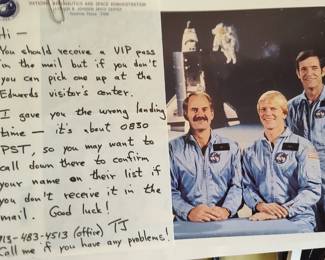 NATIONAL AERONAUTICS AND SPACE ADMINISTRATION
Hi —
You should receive a VIP pass
in the mail but if you don't
you can pick one up at the
Edwards visitor's center.
I gave you the wrong landing
time — it's about 0830
PST, so you may want to
call down there to confirm
your name on their list if
you don't receive it in the
mail. Good luck!
713-483-4513 (office) TJ
Call me if you have any problems!